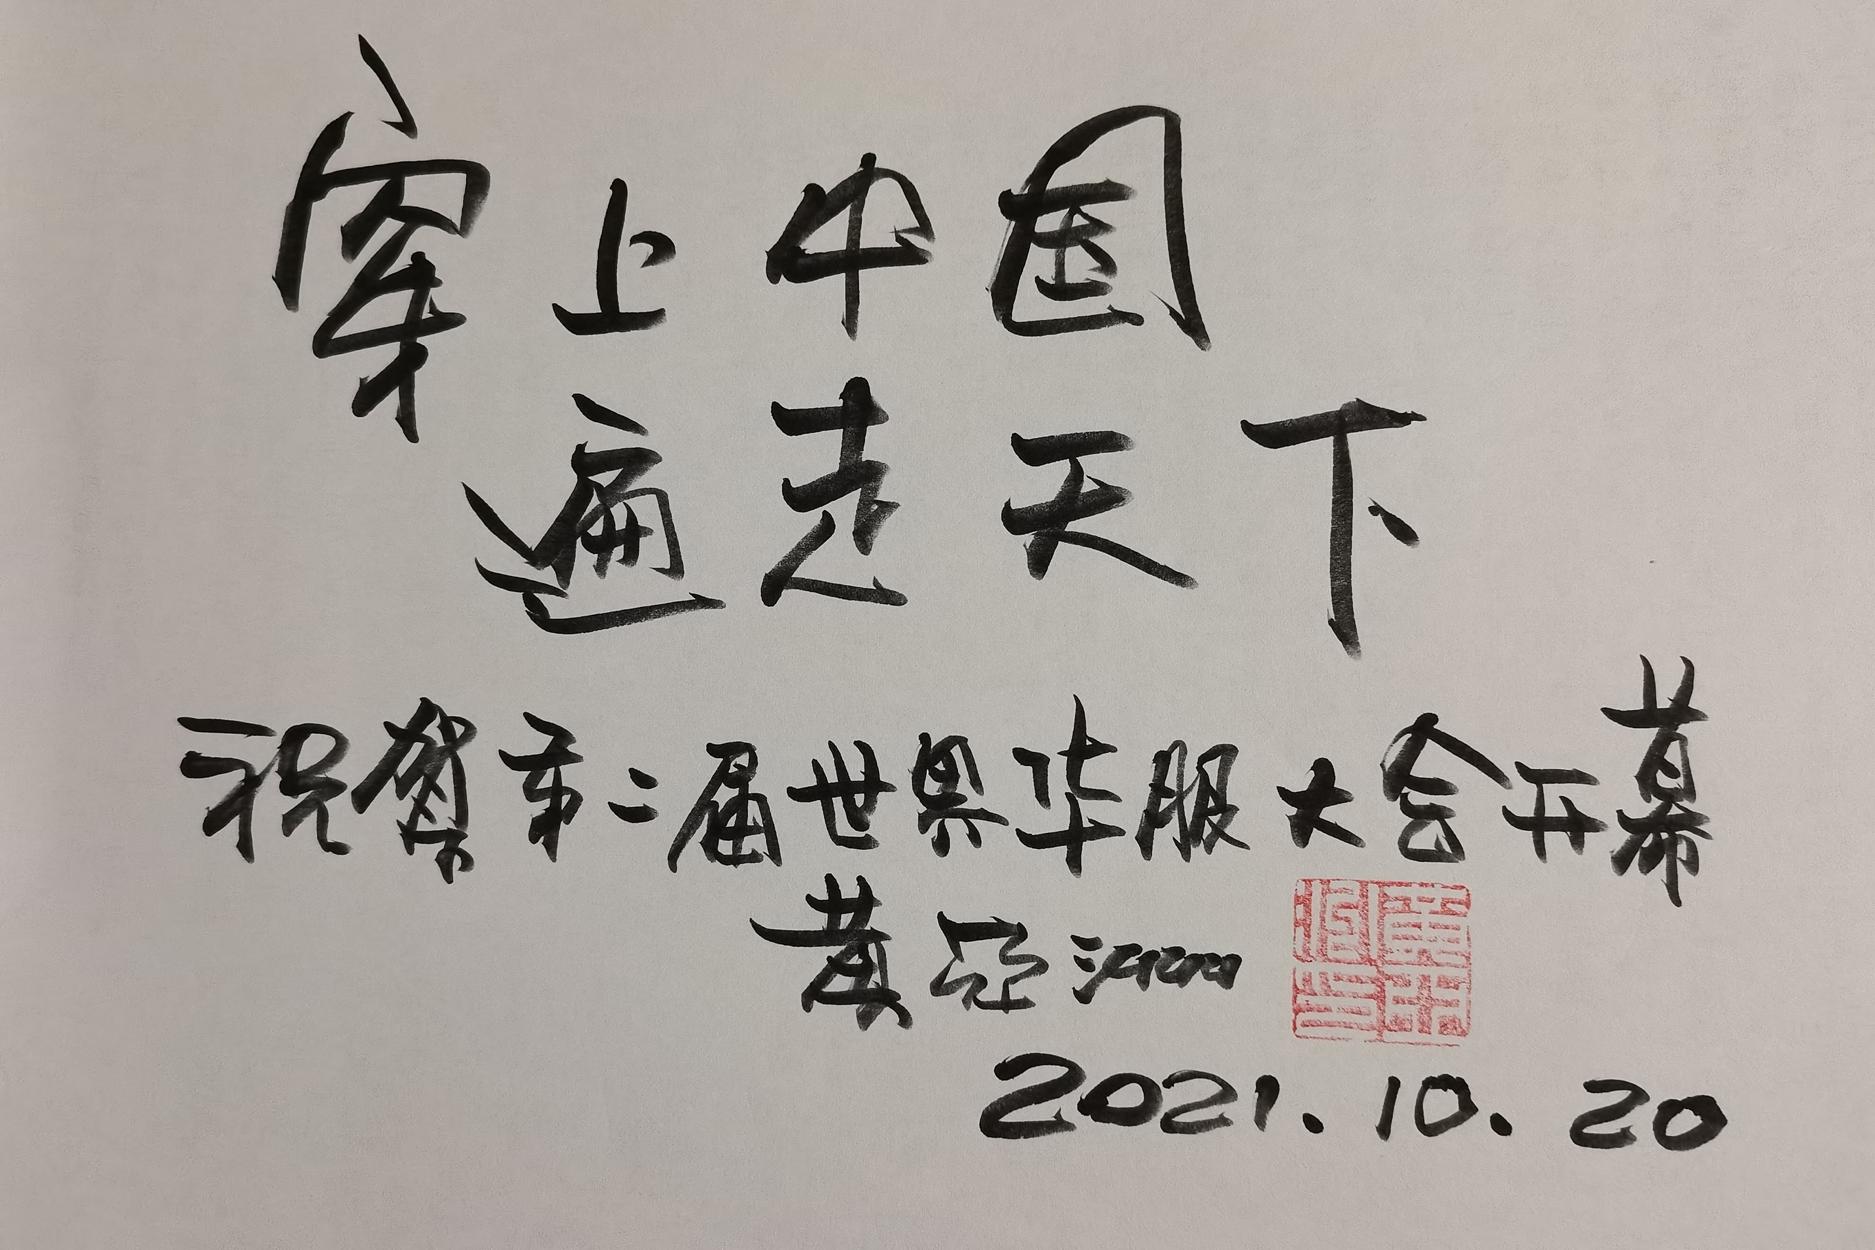 穿上中国
遍走天下
祝贺第二届世界华服大会开幕
黄亚洲
2021.10.20